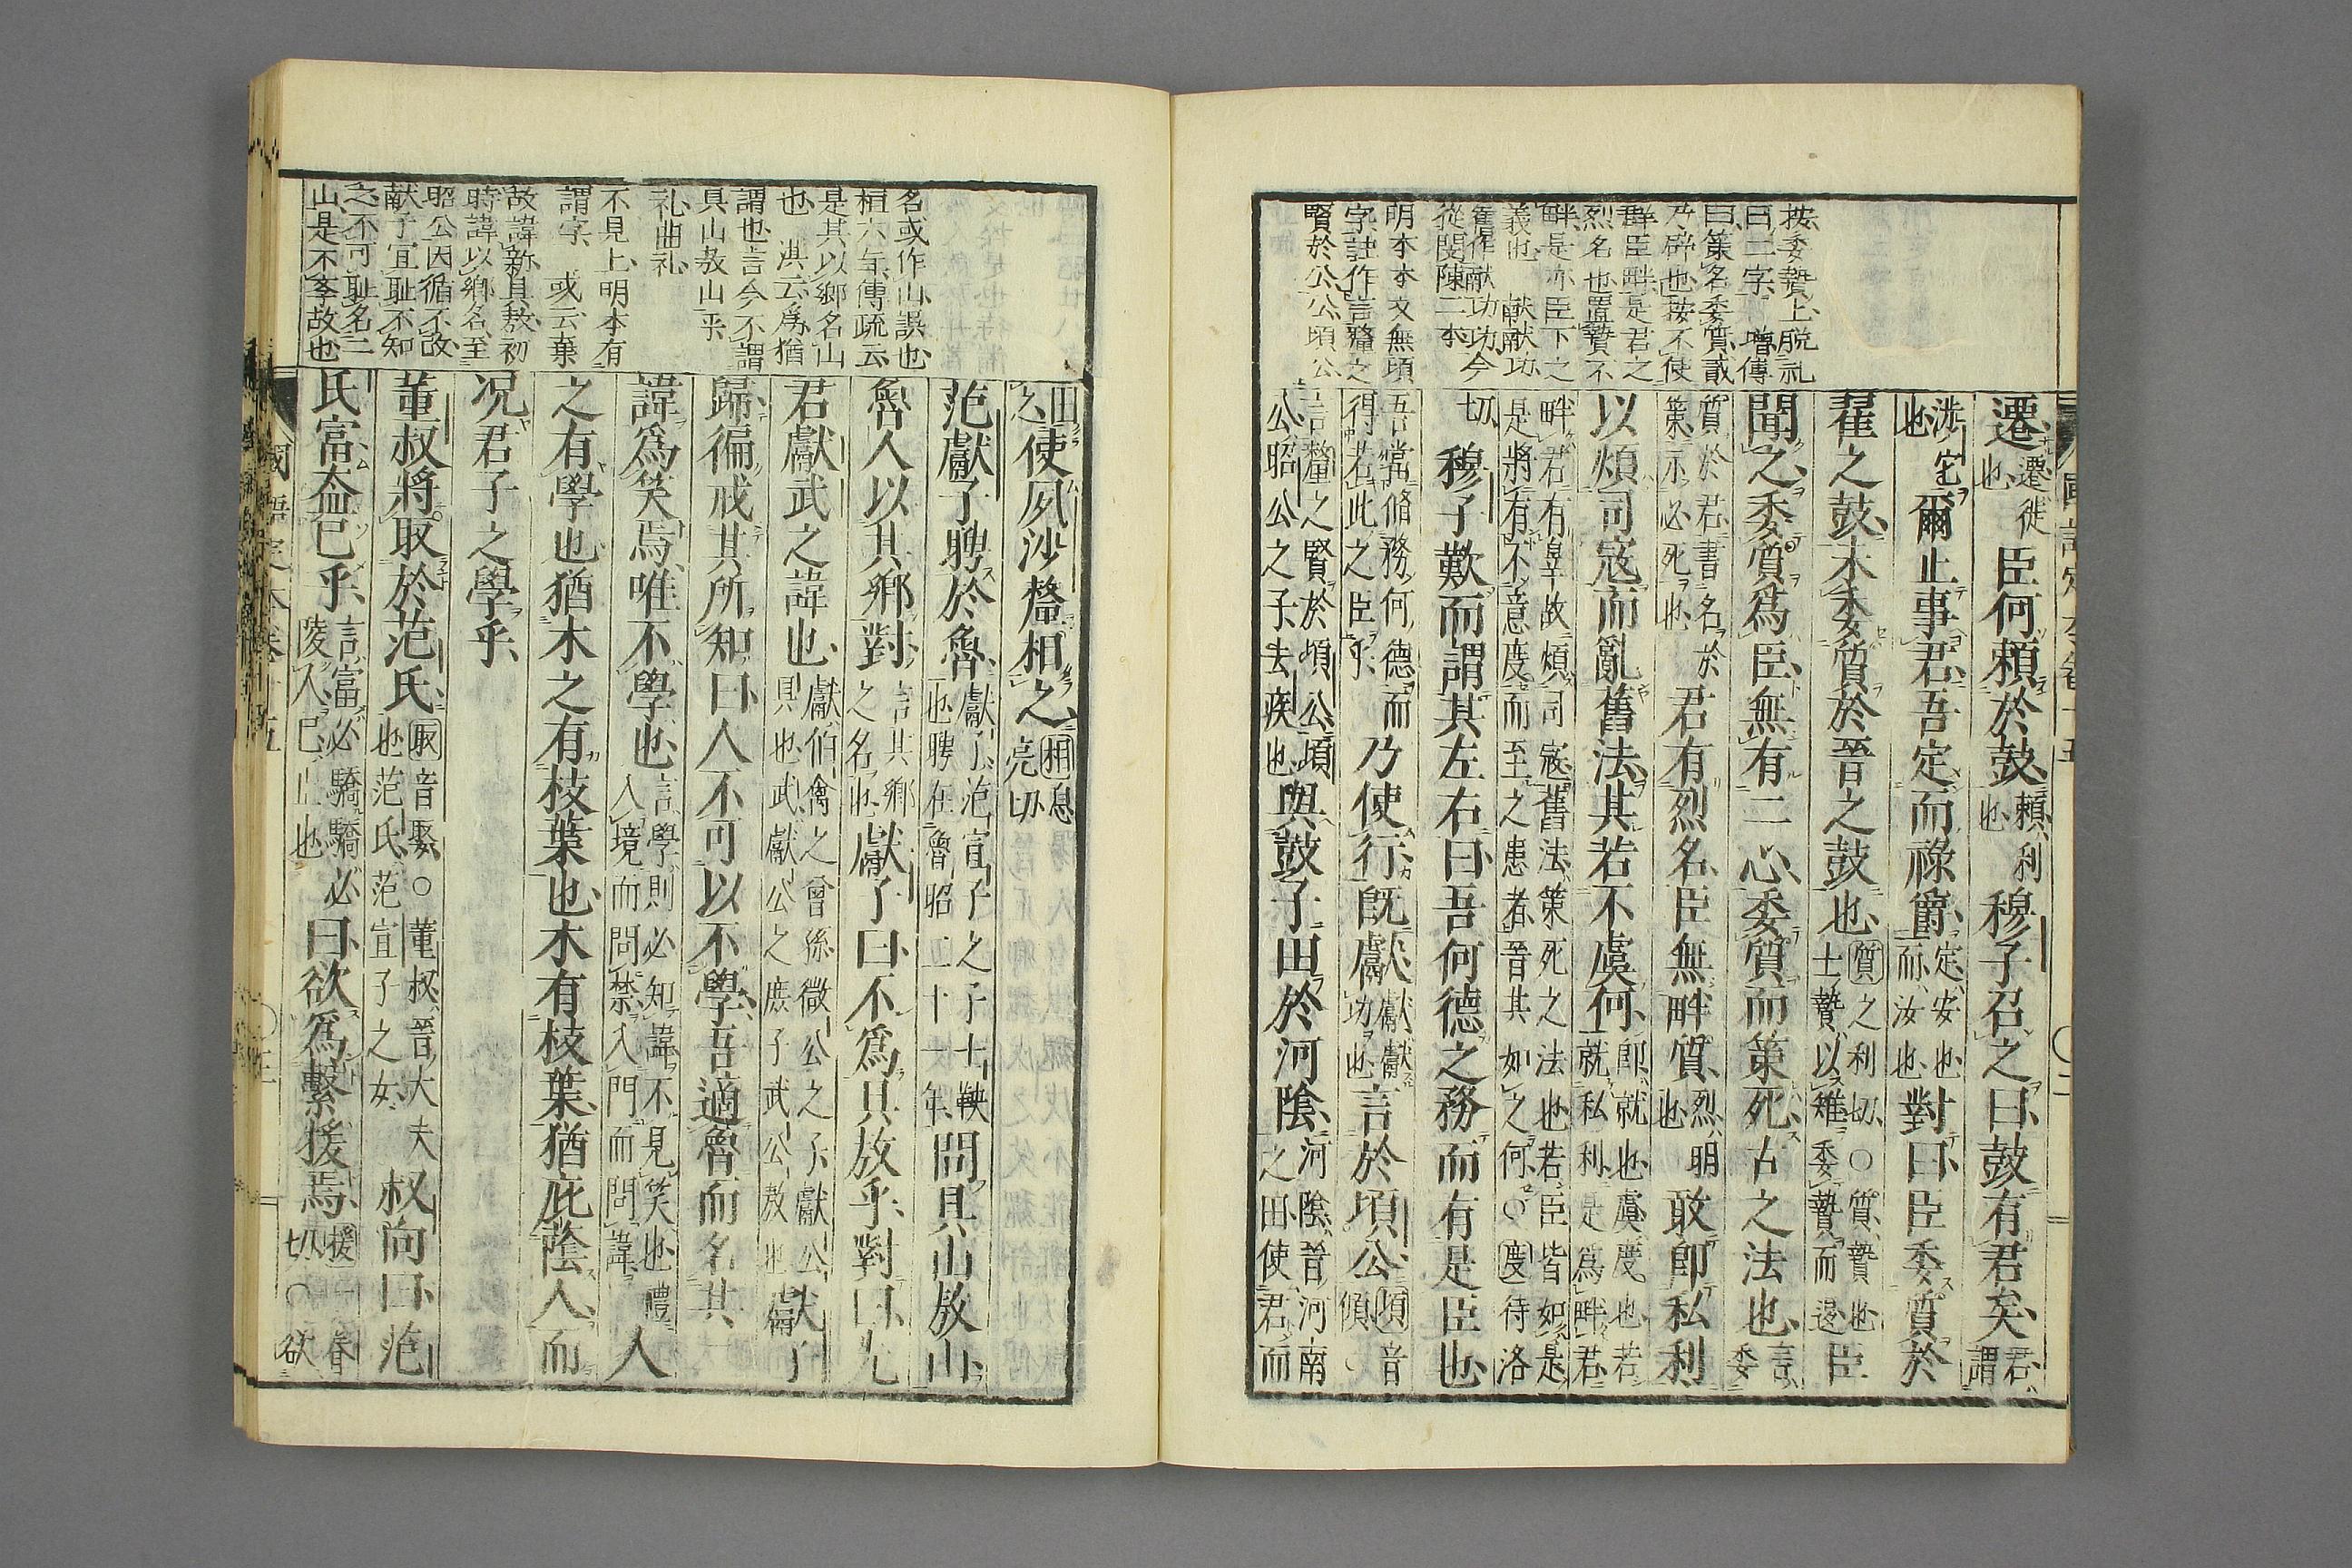 按委贄上脱礼
曰二字 増傳
曰策名委質貳
乃辟也按不使
群臣畔是君之
烈名也置贄不
畔是亦臣下之
義也 献献功
旧作献功功今
從閔陳二本
明本本文無頃
字註作言釐之
賢於公公頃公
遷遷徙也臣何賴於鼓賴利也穆子召之曰鼓有君矣君謂
洗宅也爾止事君吾定而祿爵定安也而汝也對曰臣委質於
翟之鼓未委質於晉之鼓也質之利切○質贄也士贄以雉委贄而退臣
聞之委質爲臣無有二心委質而策死古之法也言委
質於君書名於策示必死也君有烈名臣無畔質烈明也敢即私利
以煩司寇而亂舊法其若不虞何即就也虞度也若就私利是爲畔君
畔君有辠故煩司寇舊法策死之法也若臣皆如是是將有不意度而至之患者晉其如之何○度待洛
切穆子歎而謂其左右曰吾何德之務而有是臣也
吾當脩務何德而得若此之臣乎乃使行既獻獻獻功也言於頃公頃音傾○
言釐之賢於頃公頃公昭公之子去疾也與鼓子田於河陰河陰晉河南之田使君而
田之使夙沙釐相之相息亮切
范獻子聘於魯獻子范宣子之子士鞅也聘在魯昭二十一年問具山敖山
魯人以其鄉對言其鄉之名也獻子曰不爲具敖乎對曰先
君獻武之諱也獻伯禽之曾孫微公之子獻公具也武獻公之庶子武公敖也獻子
歸徧戒其所知曰人不可以不學吾適魯而名其二
諱爲笑焉唯不學也言學則必知諱不見笑也禮入境而問禁入門而問諱人
之有學也猶木之有枝葉也木有枝葉猶庇蔭人而
况君子之學乎
董叔將取於范氏取音娶○董叔晉大夫也范氏范宣子之女叔向曰范
氏富盍已乎言富必驕驕必陵人已止也曰欲爲繫援焉援于眷切○欲
名或作山誤也
桓六年傳疏云
是其以鄉名山
也 淇云爲猶
謂也言今不謂
具山敖山乎
礼曲礼
不見上明本有
謂字 或云棄
故諱新具敖初
時諱以鄉名至
昭公因循不改
献子宜耻不知
之不可耻名二
山是不李故也